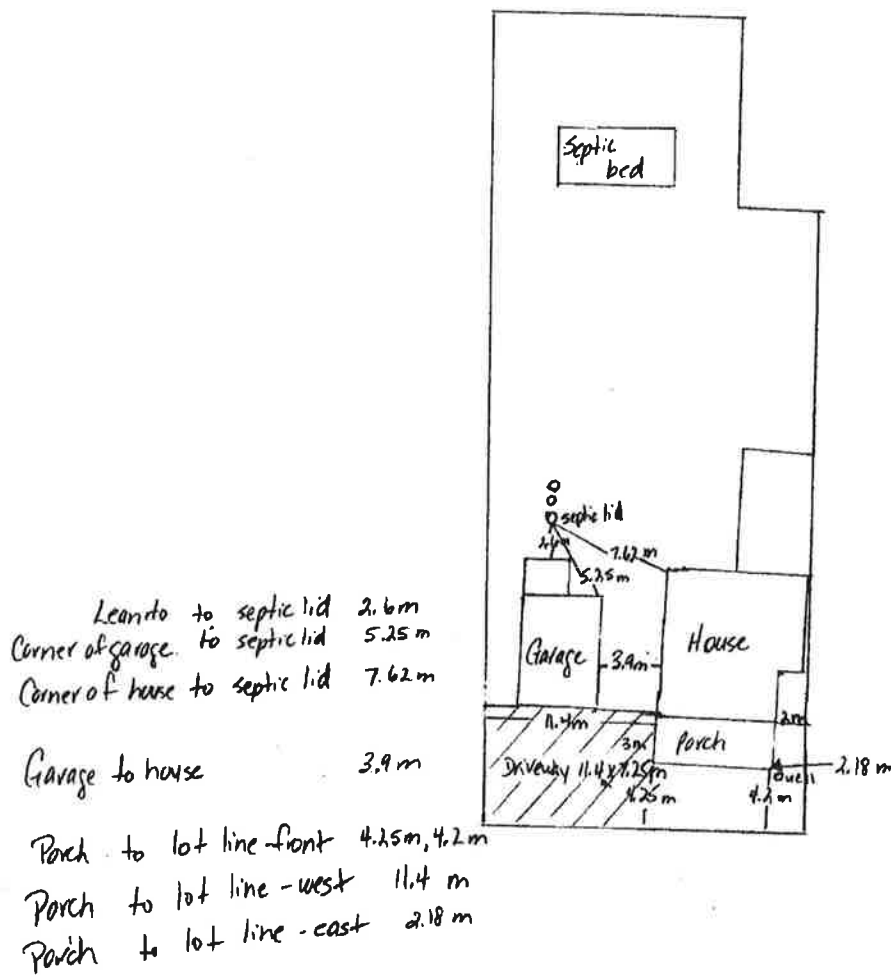 Septic
bed
septic lid
2.6m
7.62 m
5.25 m
Garage
3.9m
House
11.4m
2m
3m
Porch
Driveway 11.4 x 7.25m
4.25 m
4.2 m
2.18 m
Leanto to septic lid 2.6m
Corner of garage. to septic lid 5.25 m
Corner of house to septic lid 7.62 m
Garage to house 3.9 m
Porch to lot line-front 4.25m, 4.2m
Porch to lot line-west 11.4 m
Porch to lot line-east 2.18 m